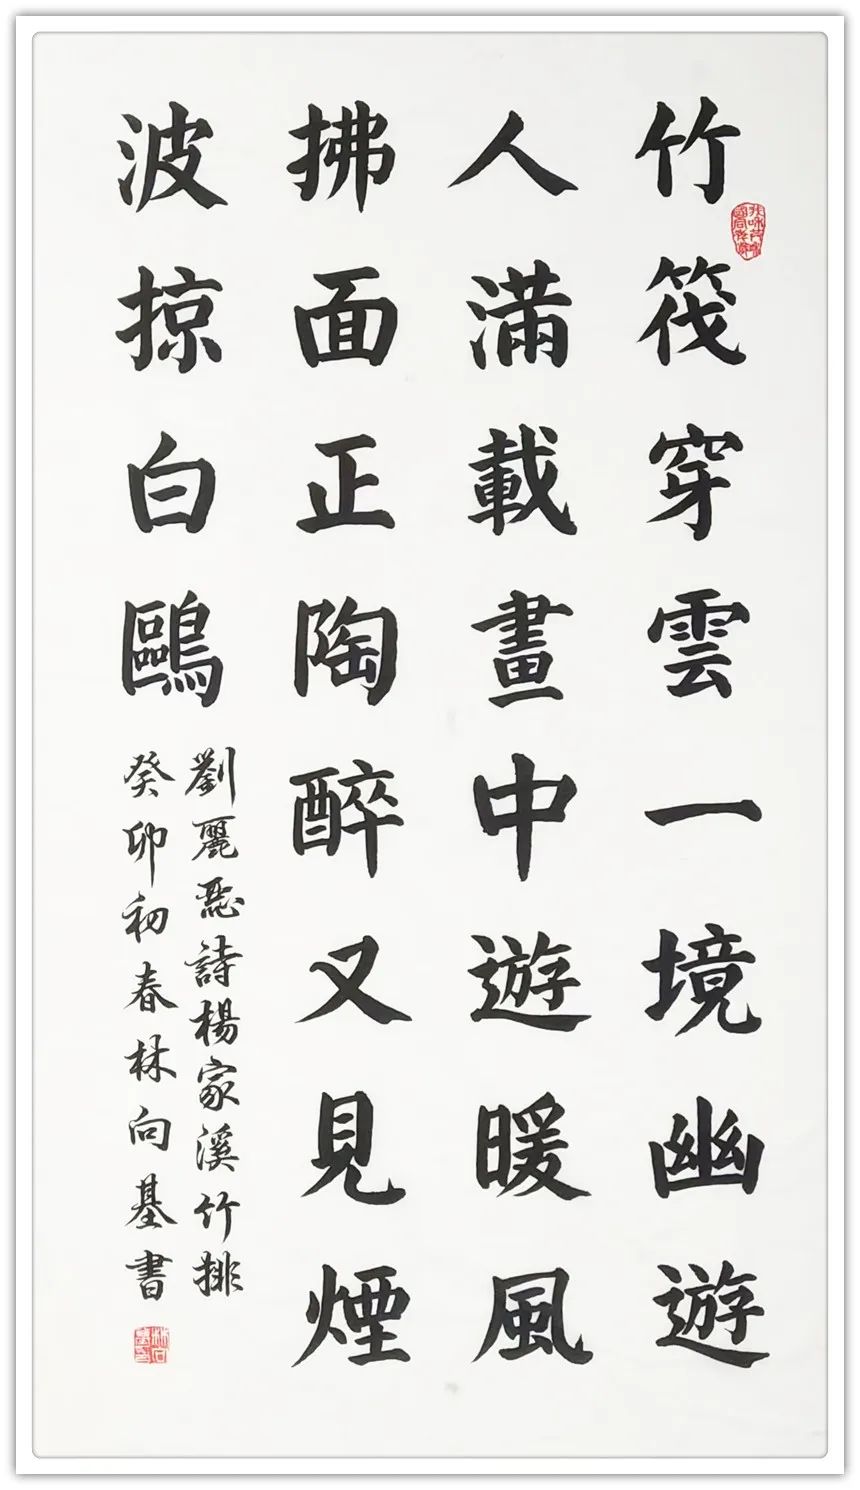 竹筏穿雲一境幽遊
人滿載畫中遊暖風
拂面正陶醉又見煙
波掠白鷗
劉麗惡詩楊家溪竹排
癸卯初春林向基書